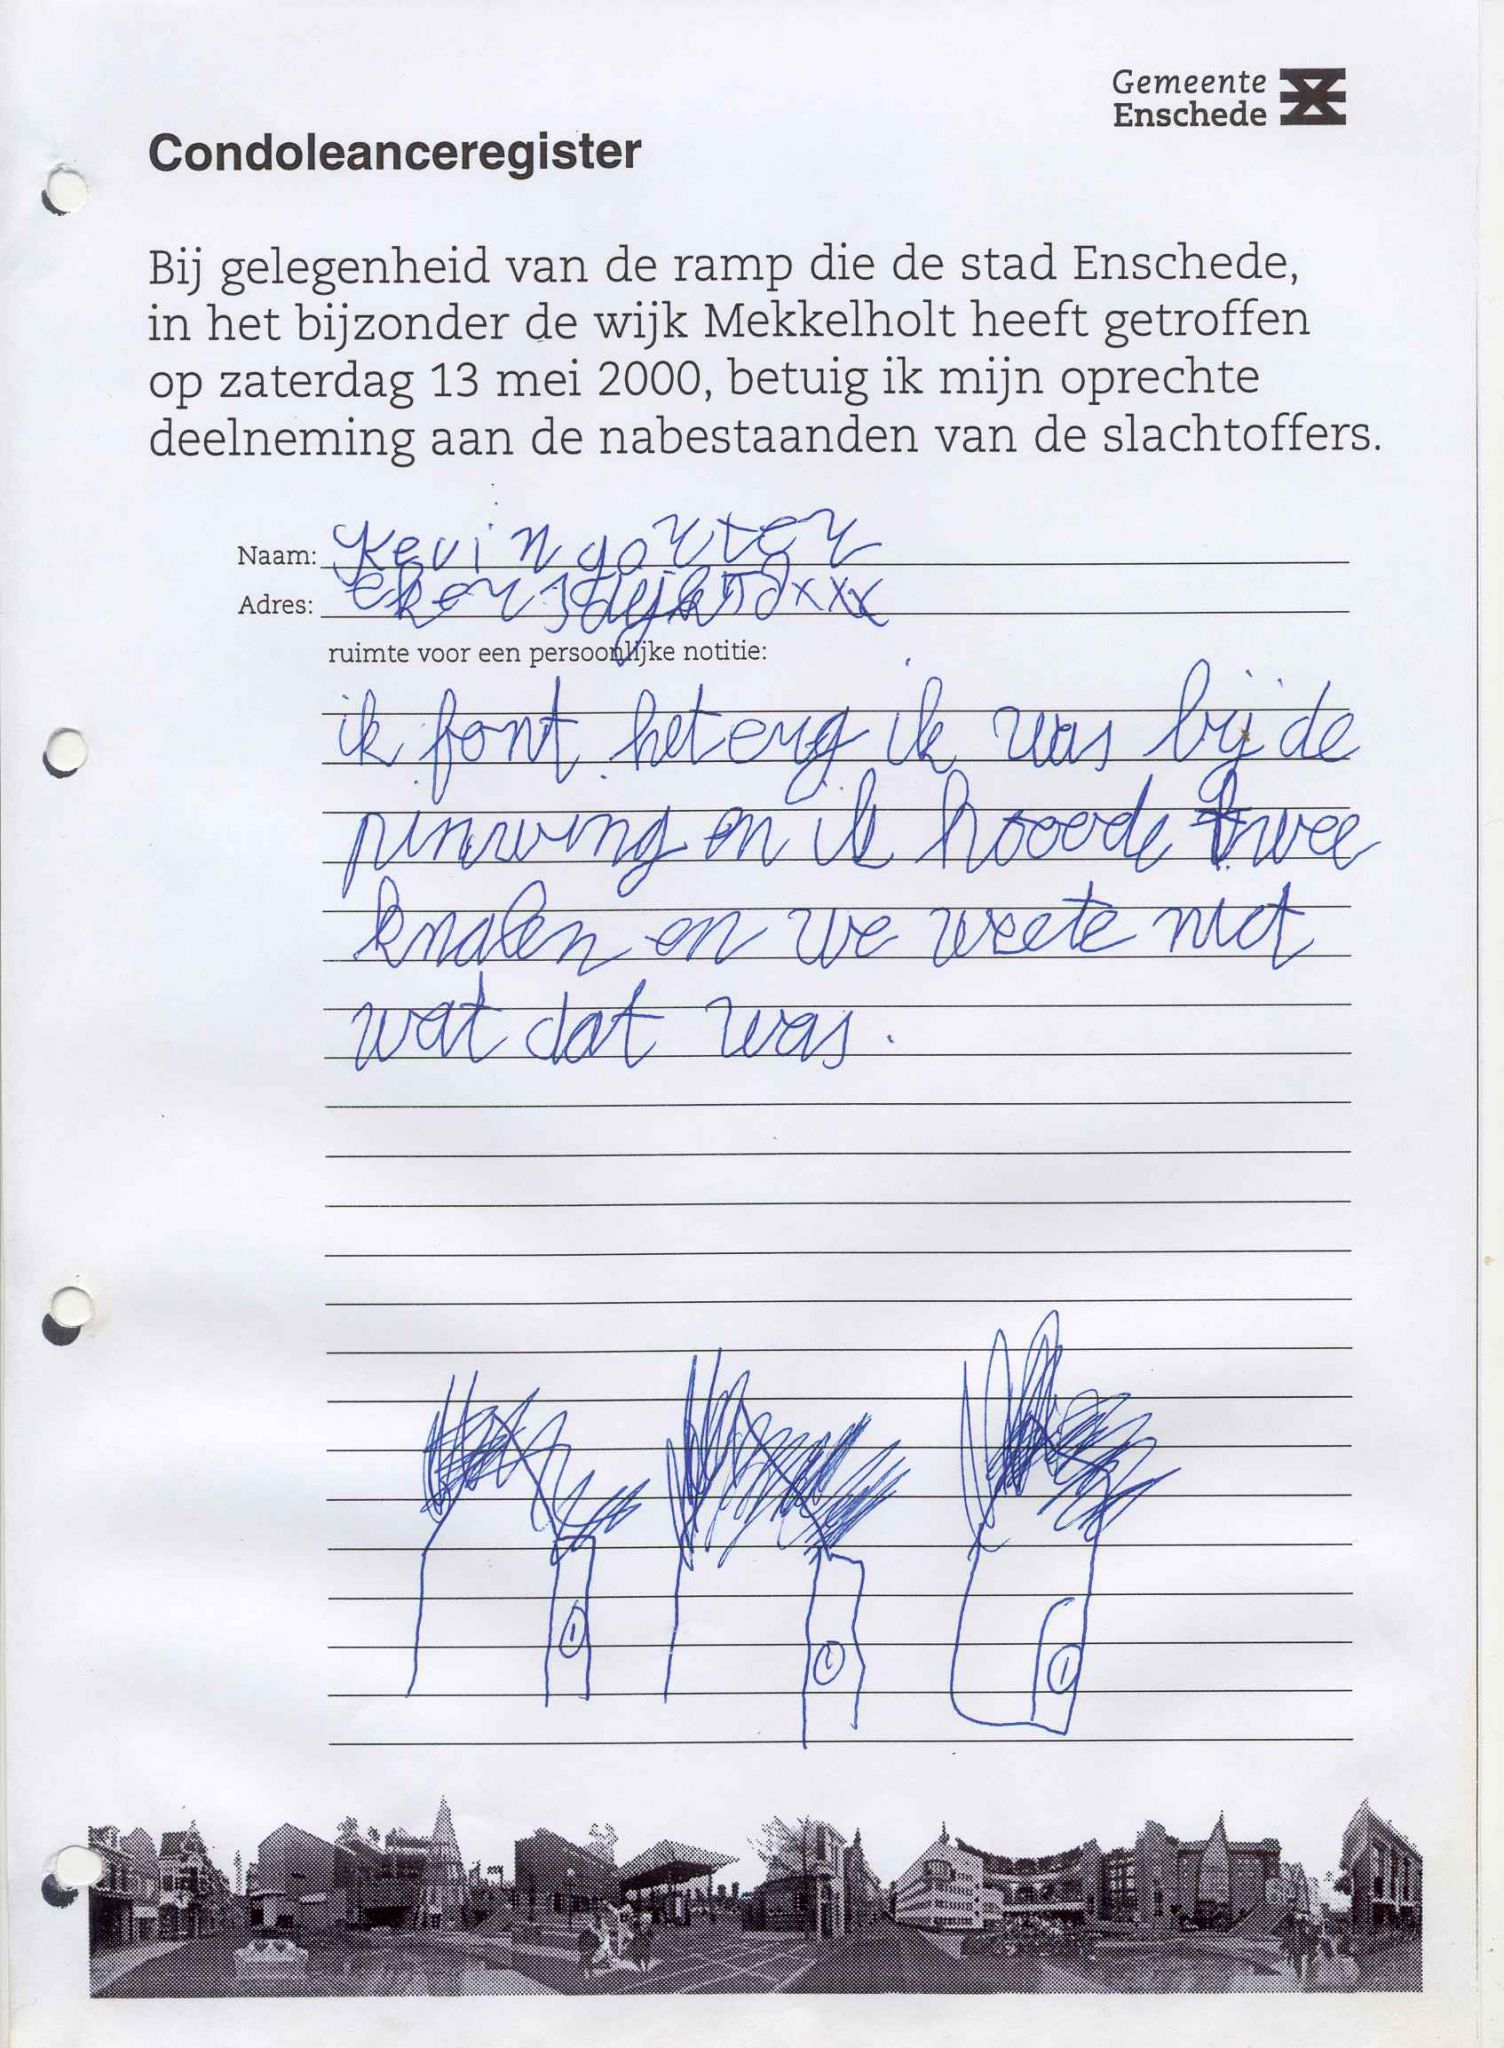 Gemeente
Enschede
Condoleanceregister
Bij gelegenheid van de ramp die de stad Enschede,
in het bijzonder de wijk Mekkelholt heeft getroffen
op zaterdag 13 mei 2000, betuig ik mijn oprechte
deelneming aan de nabestaanden van de slachtoffers.
Naam: Kevin gorter
Adres:
ruimte voor een persoonlijke notitie:
ik font het erg ik was bij de
pinwing en ik hooode twee
knalen en we weete niet
wat dat was.